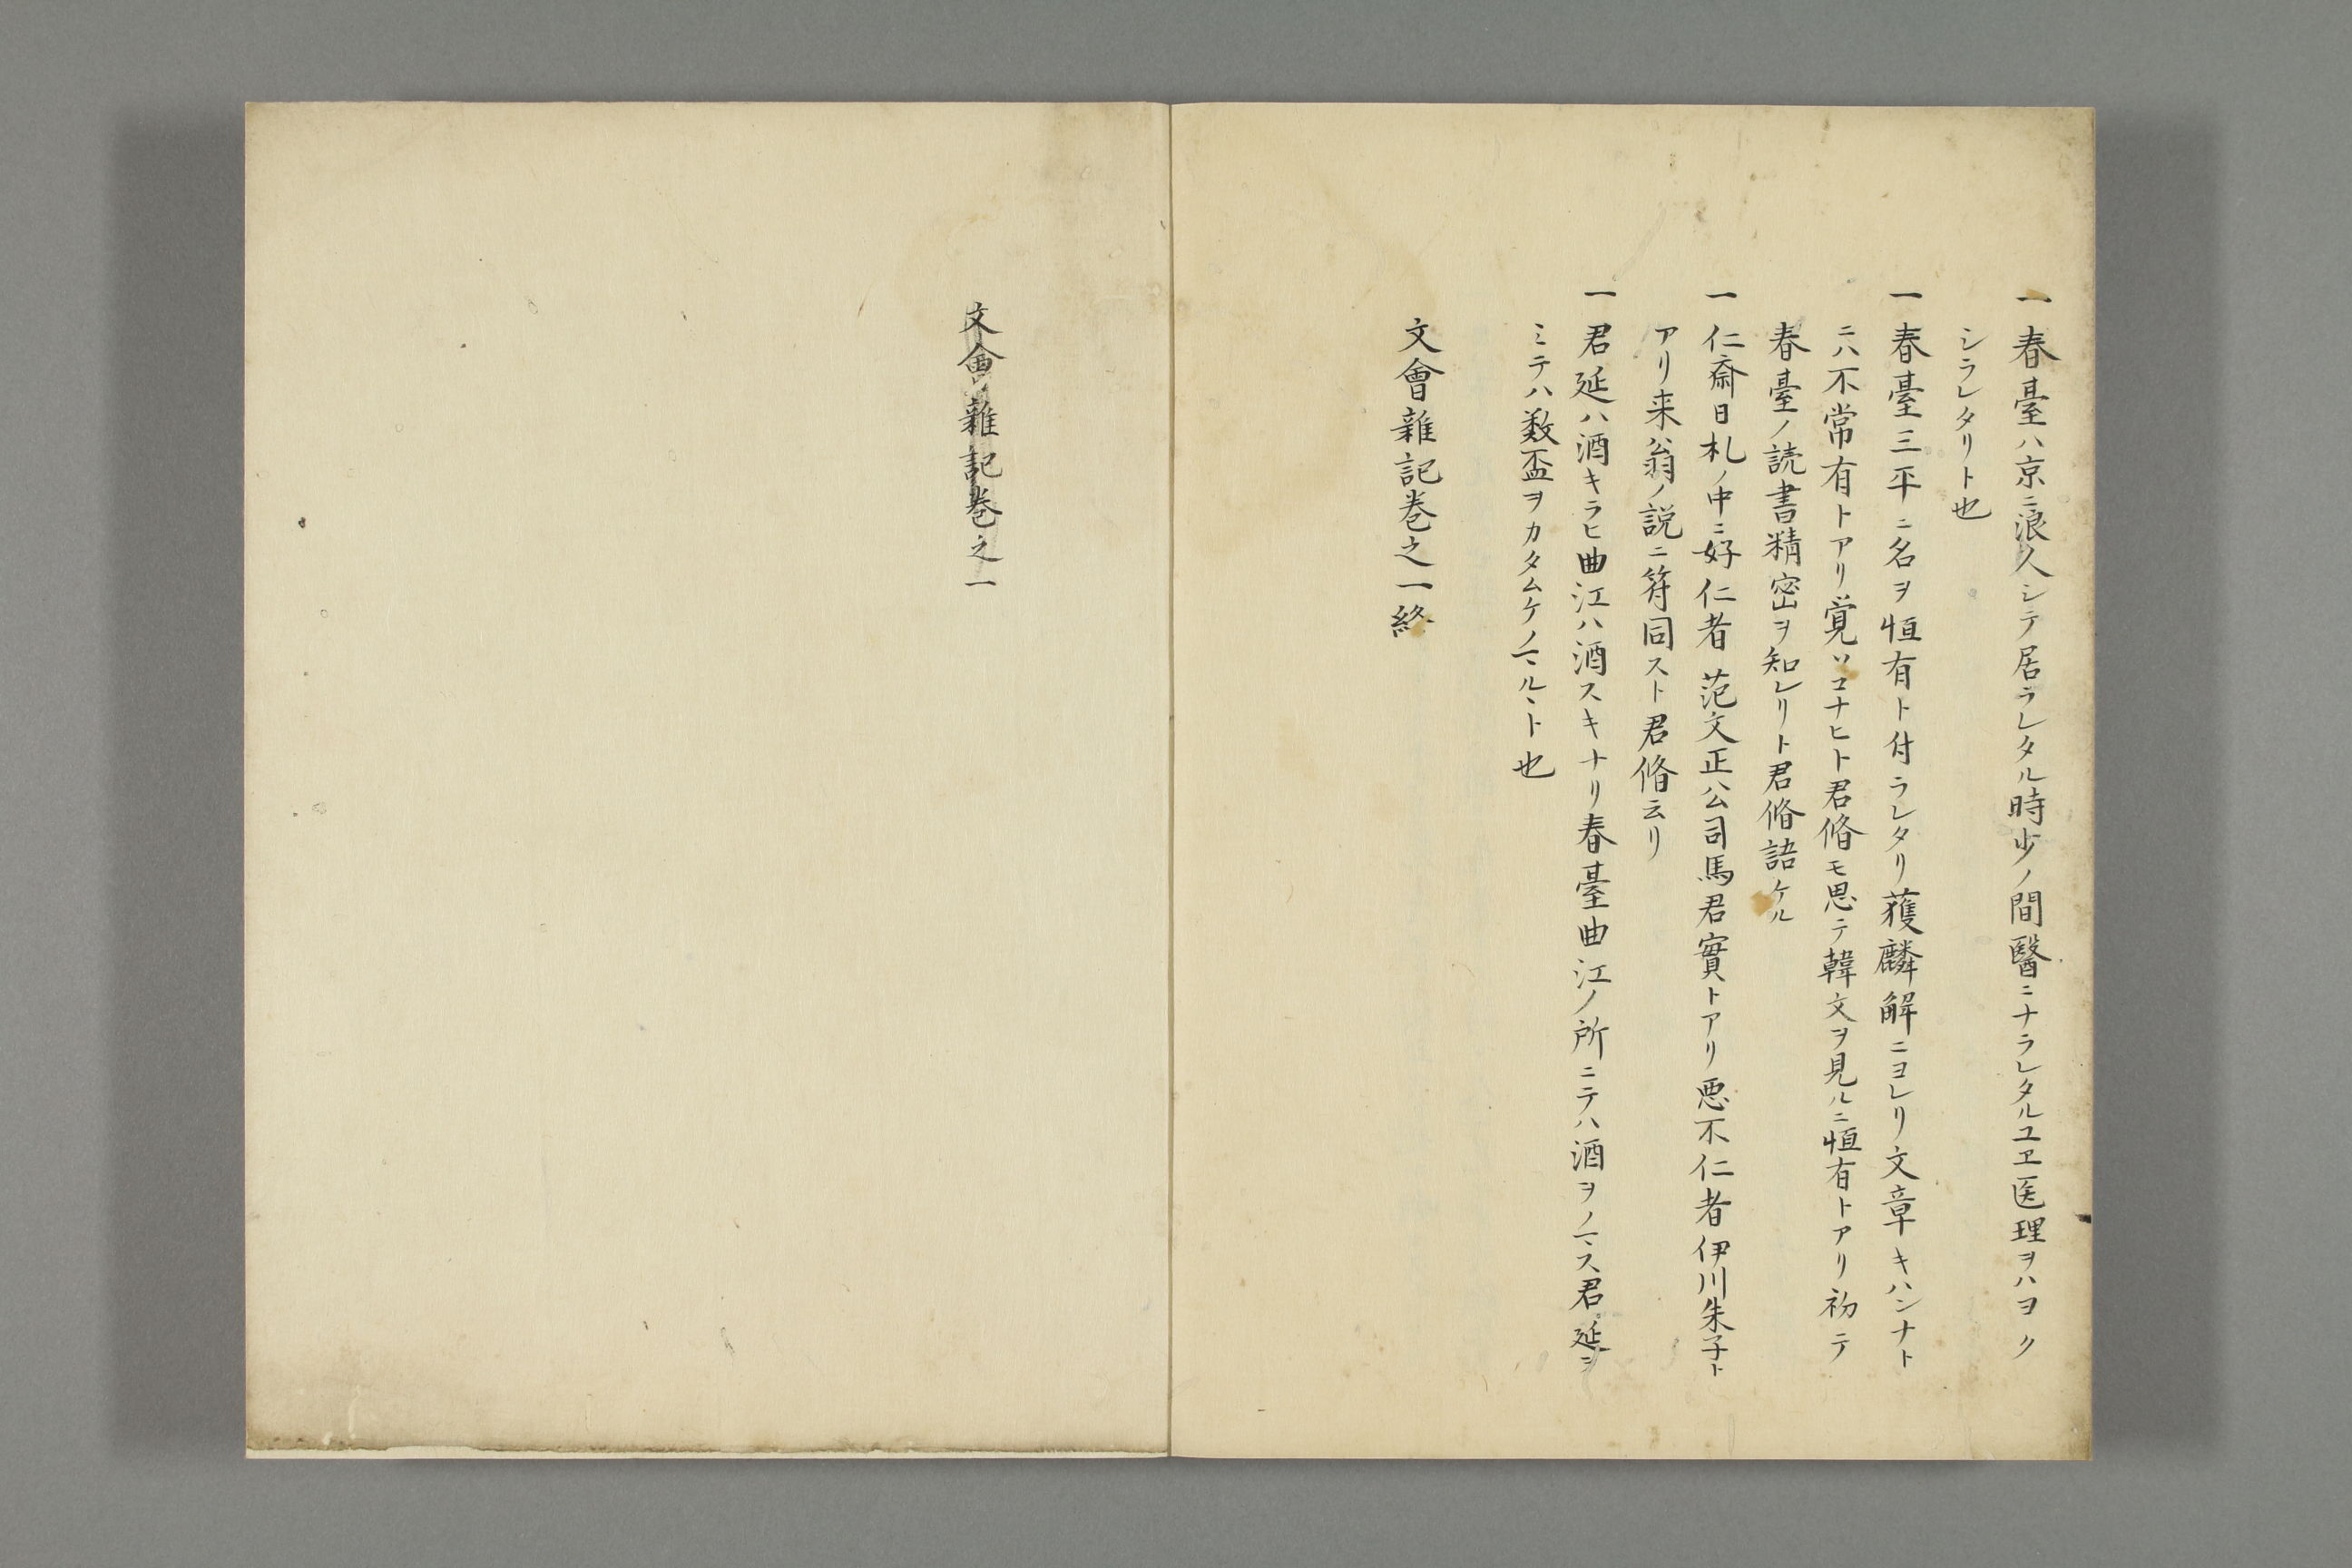 一春臺ハ京ニ浪人シテ居ラレタル時少ノ間醫ニナラレタルユヱ医理ヲハヨク
シラレタリト也
一春臺三平ニ名ヲ恒有ト付ラレタリ獲麟解ニヨレリ文章キハンナト
ニハ不常有トアリ覚ソコナヒト君脩モ思テ韓文ヲ見ルニ恒有トアリ初テ
春臺ノ読書精密ヲ知レリト君脩語ケル
一仁斎日札ノ中ニ好仁者范文正公司馬君實トアリ悪不仁者伊川朱子ト
アリ来翁ノ説ニ符同スト君脩云リ
一君延ハ酒キラヒ曲江ハ酒スキナリ春臺曲江ノ所ニテハ酒ヲノマス君延ヲ
ミテハ数盃ヲカタムケノマルヽト也
文會雜記巻之一終
文會雜記巻之一